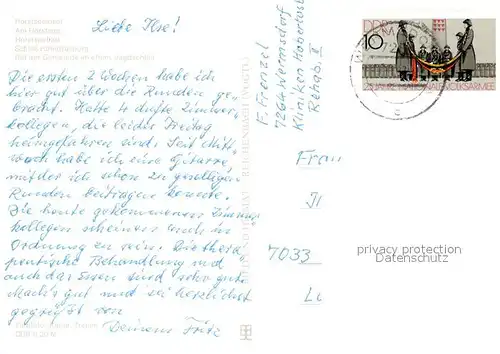 Liebe Ilse!
Die ersten 2 Wochen habe ich
hier gut über die Runden ge-
bracht. Hatte 4 dufte Zimmer-
kollegen, die leider Freitag
heimgefahren sind. Seit Mitt
woch habe ich eine Gitarre
mit der ich schon zu geselligen
Runden beitragen konnte.
Die heute gekommenen Zimmer
kollegen scheinen auch in
Ordnung zu sein. Die thera
peutische Behandlung und
auch das Essen sind sehr gut.
Mach's gut und sei herzlichst
gegrüßt von
Deinem Fritz
F. Frenzel
7264 Wermsdorf
Kliniken Hubertusb
Rehab. II
DDR
10
25 JAHRE NATIONALE VOLKSARMEE
Frau
7033
privacy protection
Datenschutz